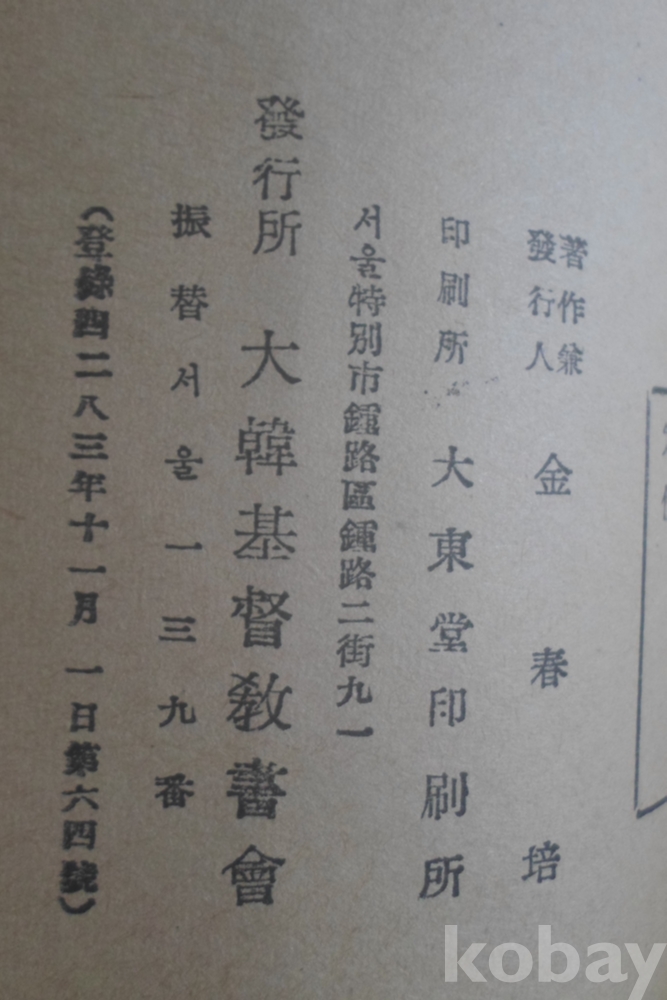 著作兼
發行人 金春培
印刷所 大東堂印刷所
서울特別市鍾路區鍾路二街九一
發行所 大韓基督敎書會
振替서울一三九番
(登錄四二八三年十一月一日第六四號)
kobay